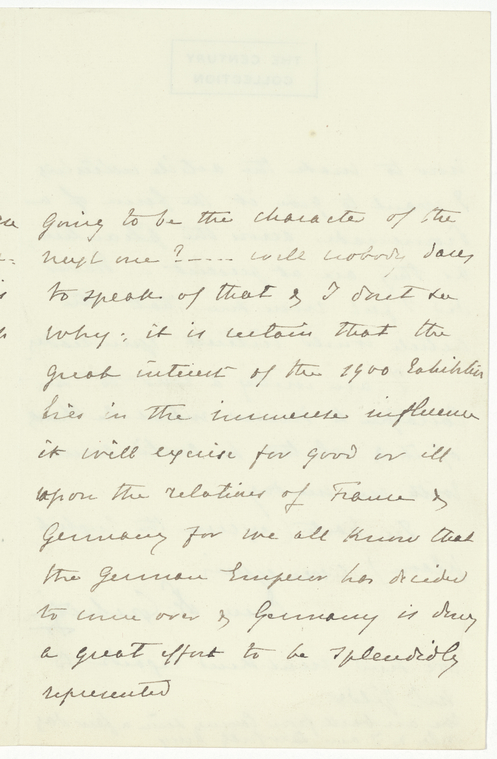 going to be the character of the
next one? ---- well nobody dares
to speak of that & I don't see
why: it is certain that the
great interest of the 1900 Exhibition
lies in the immense influence
it will exercise for good or ill
upon the relations of France &
Germany for we all know that
the German Emperor has decided
to come over & Germany is doing
a great effort to be splendidly
represented